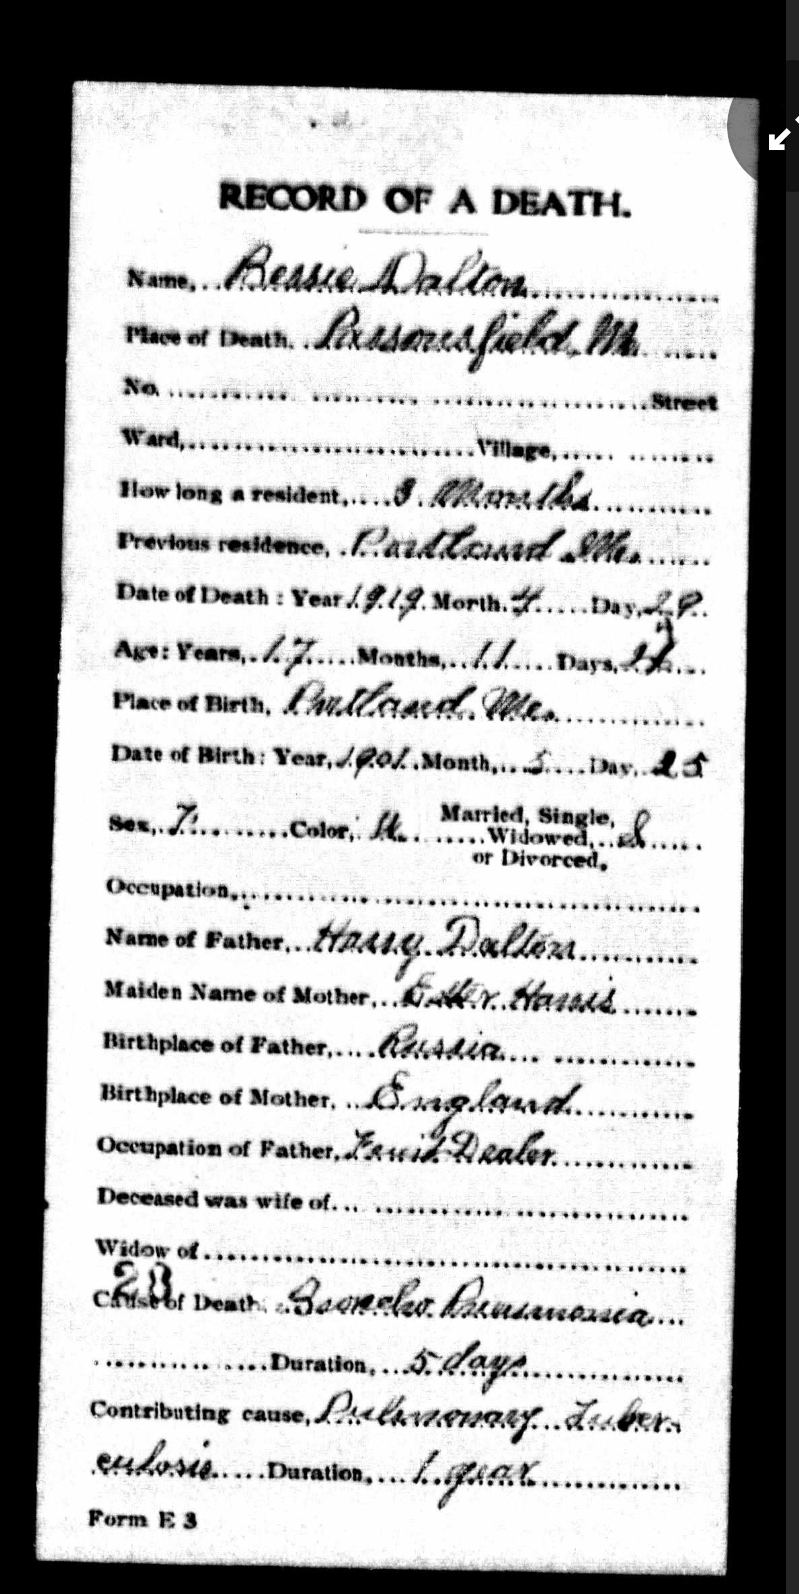 RECORD OF A DEATH.
Name, Bessie Dalton
Place of Death. Parsonsfield, Me.
No. Street
Ward, Village,
How long a resident, 3 Months
Previous residence, Portland Me.
Date of Death: Year 1919. Month. 4 Day, 29.
Age: Years, 17 Months, 11 Days,
Place of Birth, Portland, Me.
Date of Birth: Year, 1901. Month, 5 Day, 25
Sex, F. Color, Married, Single, Widowed, or Divorced, S
Occupation,
Name of Father, Harry Dalton
Maiden Name of Mother, Esther Harris
Birthplace of Father, Russia
Birthplace of Mother, England
Occupation of Father, Fruit Dealer
Deceased was wife of
Widow of
28
Cause of Death, Broncho Pneumonia
Duration, 5 days
Contributing cause, Pulmonary Tuber-
culosis Duration, 1 year
Form E 3